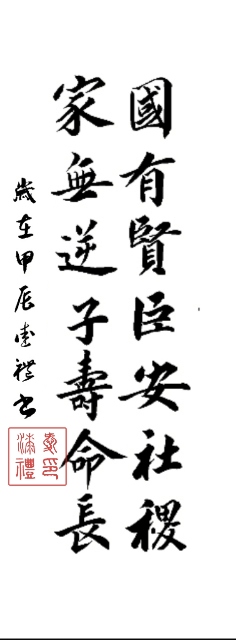 國有賢臣安社稷
家無逆子壽命長
歲在甲辰禮书